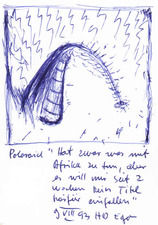 Polaroid "Hat zwar was mit
Afrika zu tun, aber
es will mir seit 2
Wochen kein Titel
hierfür einfallen"
9 VIII 93 HO